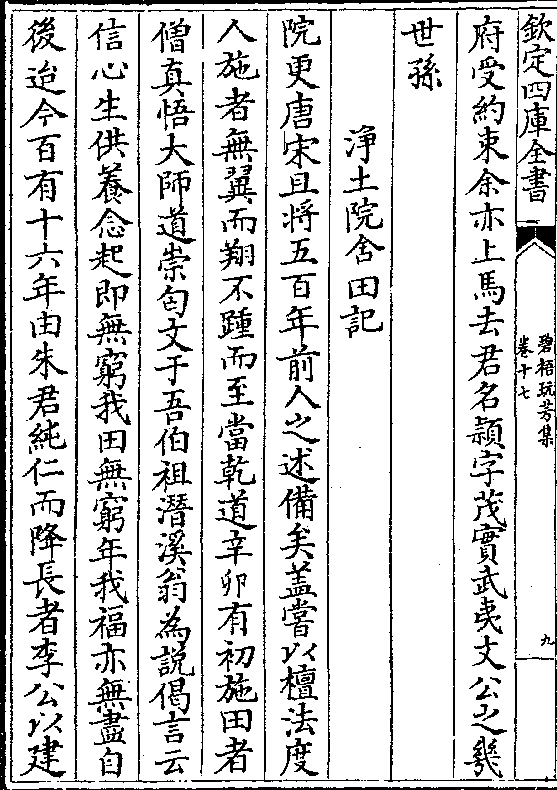 欽定四庫全書
碧梧玩芳集
卷十七
九
府受約束余亦上馬去君名潁字茂實武夷文公之幾
世孫
淨土院舍田記
院更唐宋且將五百年前人之述備矣蓋嘗以檀法度
人施者無翼而翔不踵而至當乾道辛卯有初施田者
僧真悟大師道崇匄文于吾伯祖潛溪翁為説偈言云
信心生供養念起即無窮我田無窮年我福亦無盡自
後迨今百有十六年由朱君純仁而降長者李公以建